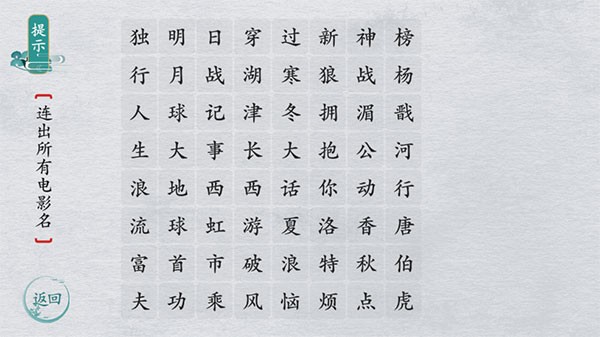 提示
【连出所有电影名】
返回
独明日穿过新神榜
行月战湖寒狼战杨
人球记津冬拥湄戬
生大事长大抱公河
浪地西西话你动行
流球虹游夏洛香唐
富首市破浪特秋伯
夫功乘风恼烦点虎